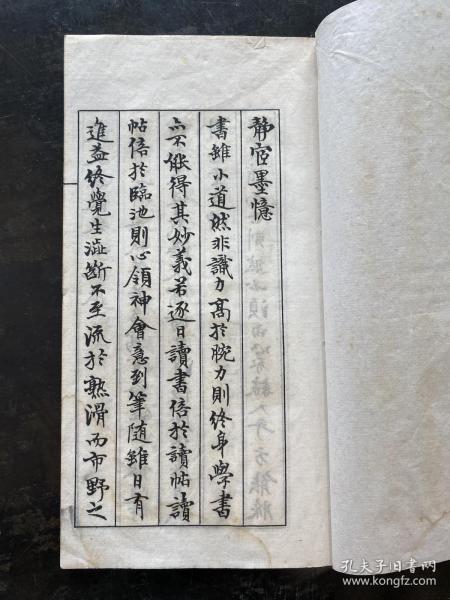 静宦墨憶
書雖小道然非識力高於腕力則終身學書
亦不能得其妙義若逐日讀書倍於讀帖讀
帖倍於臨池則心領神會意到筆隨雖日有
進益終覺生澁斷不至流於熟滑而市野之
孔夫子旧书网
www.kongfz.com